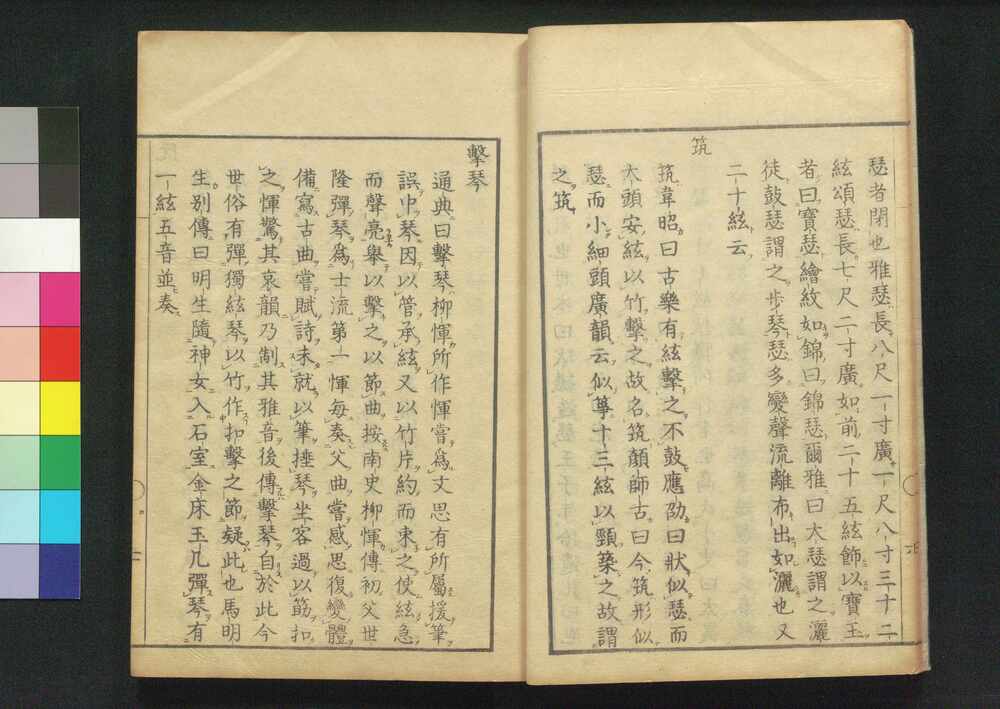 瑟者閉也雅瑟長八尺一寸廣一尺八寸三十二
絃頌瑟長七尺二寸廣如前二十五絃飾以寶玉
者曰寶瑟繪紋如錦曰錦瑟爾雅曰大瑟謂之灑
徒鼓瑟謂之步琴瑟多變聲流離布出如灑也又
二十絃云
筑
筑韋昭曰古樂有絃擊之不鼓應劭曰狀似瑟而
大頭安絃以竹擊之故名筑顏師古曰今筑形似
瑟而小細頭廣韻云似箏十三絃以頸築之故謂
之筑
擊琴
通典曰擊琴柳惲所作惲嘗為文思有所屬援筆
誤中琴因以管承絃又以竹片約而束之使絃急
而聲亮舉以擊之以節曲按南史柳惲傳初父世
隆彈琴為士流第一惲每奏父曲嘗感思復變體
備寫古曲嘗賦詩未就以筆捶琴坐客過以筯扣
之惲驚其哀韻乃制其雅音後傳擊琴自於此今
世俗有彈獨絃琴以竹作扣擊之節疑此也馬明
生別傳曰明生隨神女入石室金床玉几彈琴有
一絃五音並奏